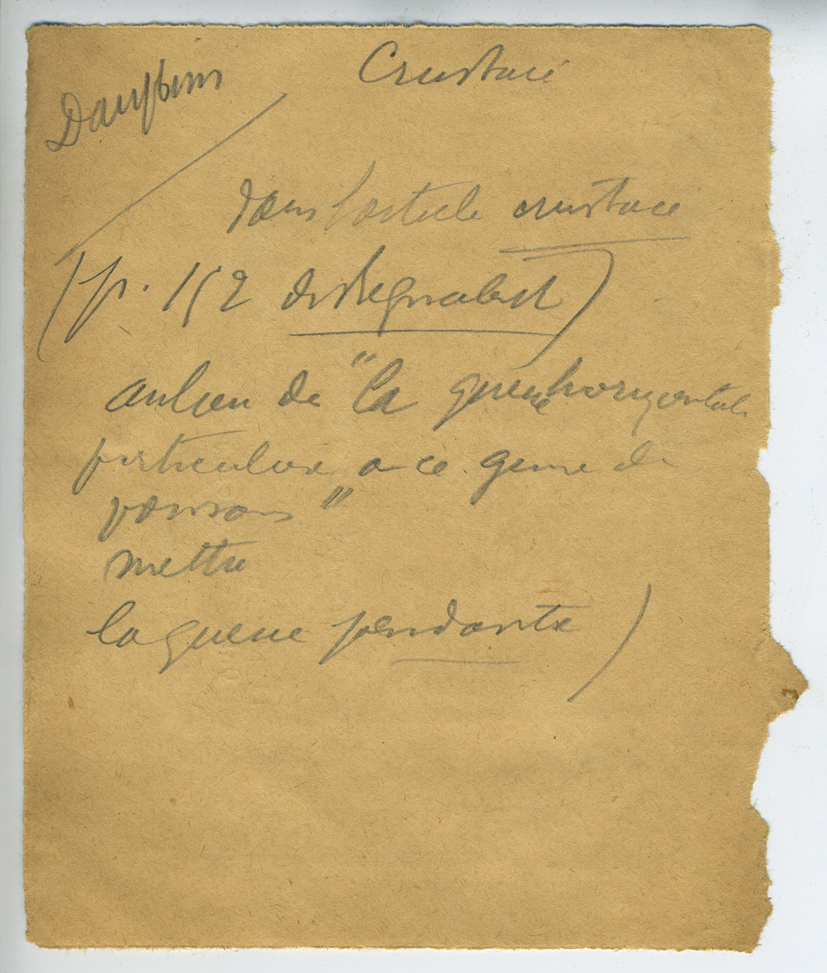 Dauphins
Crustacé
dans l'article crustacé
(p. 152 de Regnabit)
au lieu de "la queue horizontale
particulière a ce genre de
poissons"
mettre
la queue pendante)